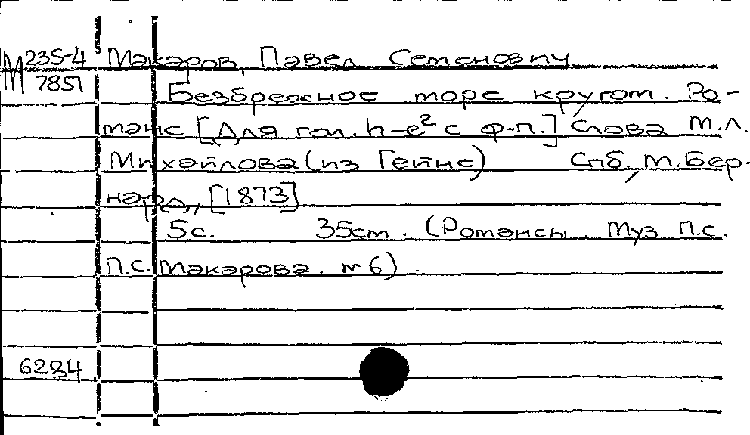 М 235-4 Макаров, Павел Семенович
7851
Безбрежное море кругом. Ро-
манс [Для гол. h-e² с ф-п.] Слова М.Л.
Михайлова (из Гейне) Спб, М. Бер-
нард, [1873]
5с. 35см. (Романсы. Муз П.С.
П.С. Макарова. № 6).
6284